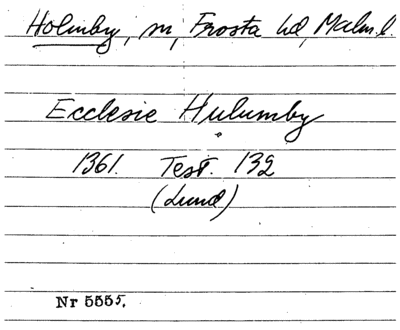 Holmby, sn, Frosta hd, Malm. l.
Ecclesie Hulumby
1361. Test. 132
(Lund)
Nr 5555.